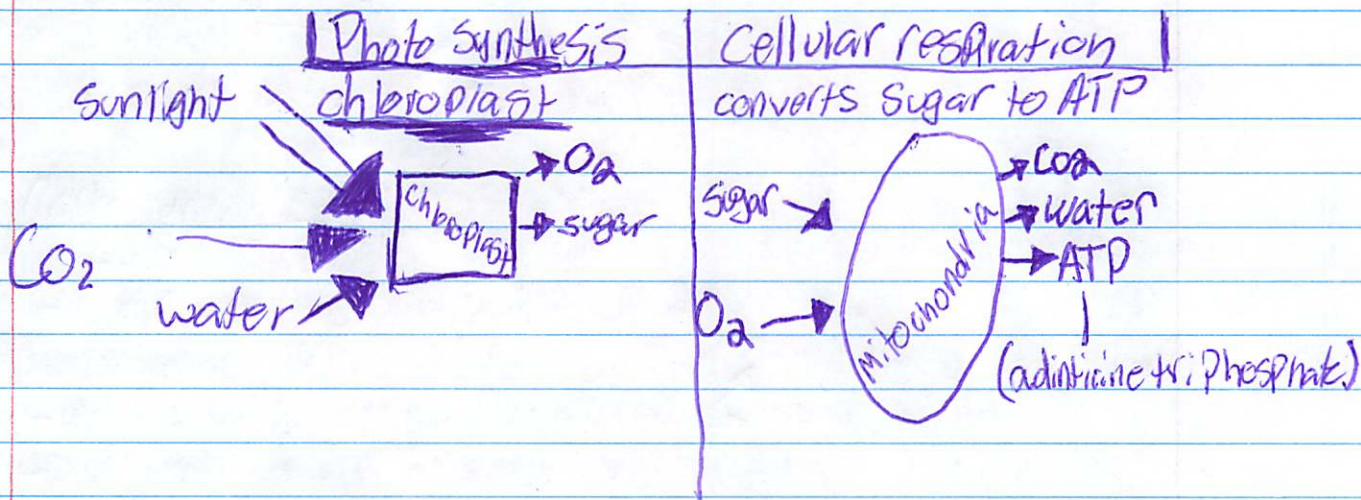 Photo Synthesis
chloroplast
sunlight
CO2
water
Chloroplast
O2
sugar
Cellular respiration
converts Sugar to ATP
Sugar
O2
Mitochondria
CO2
water
ATP
(adinticine triphosphate)